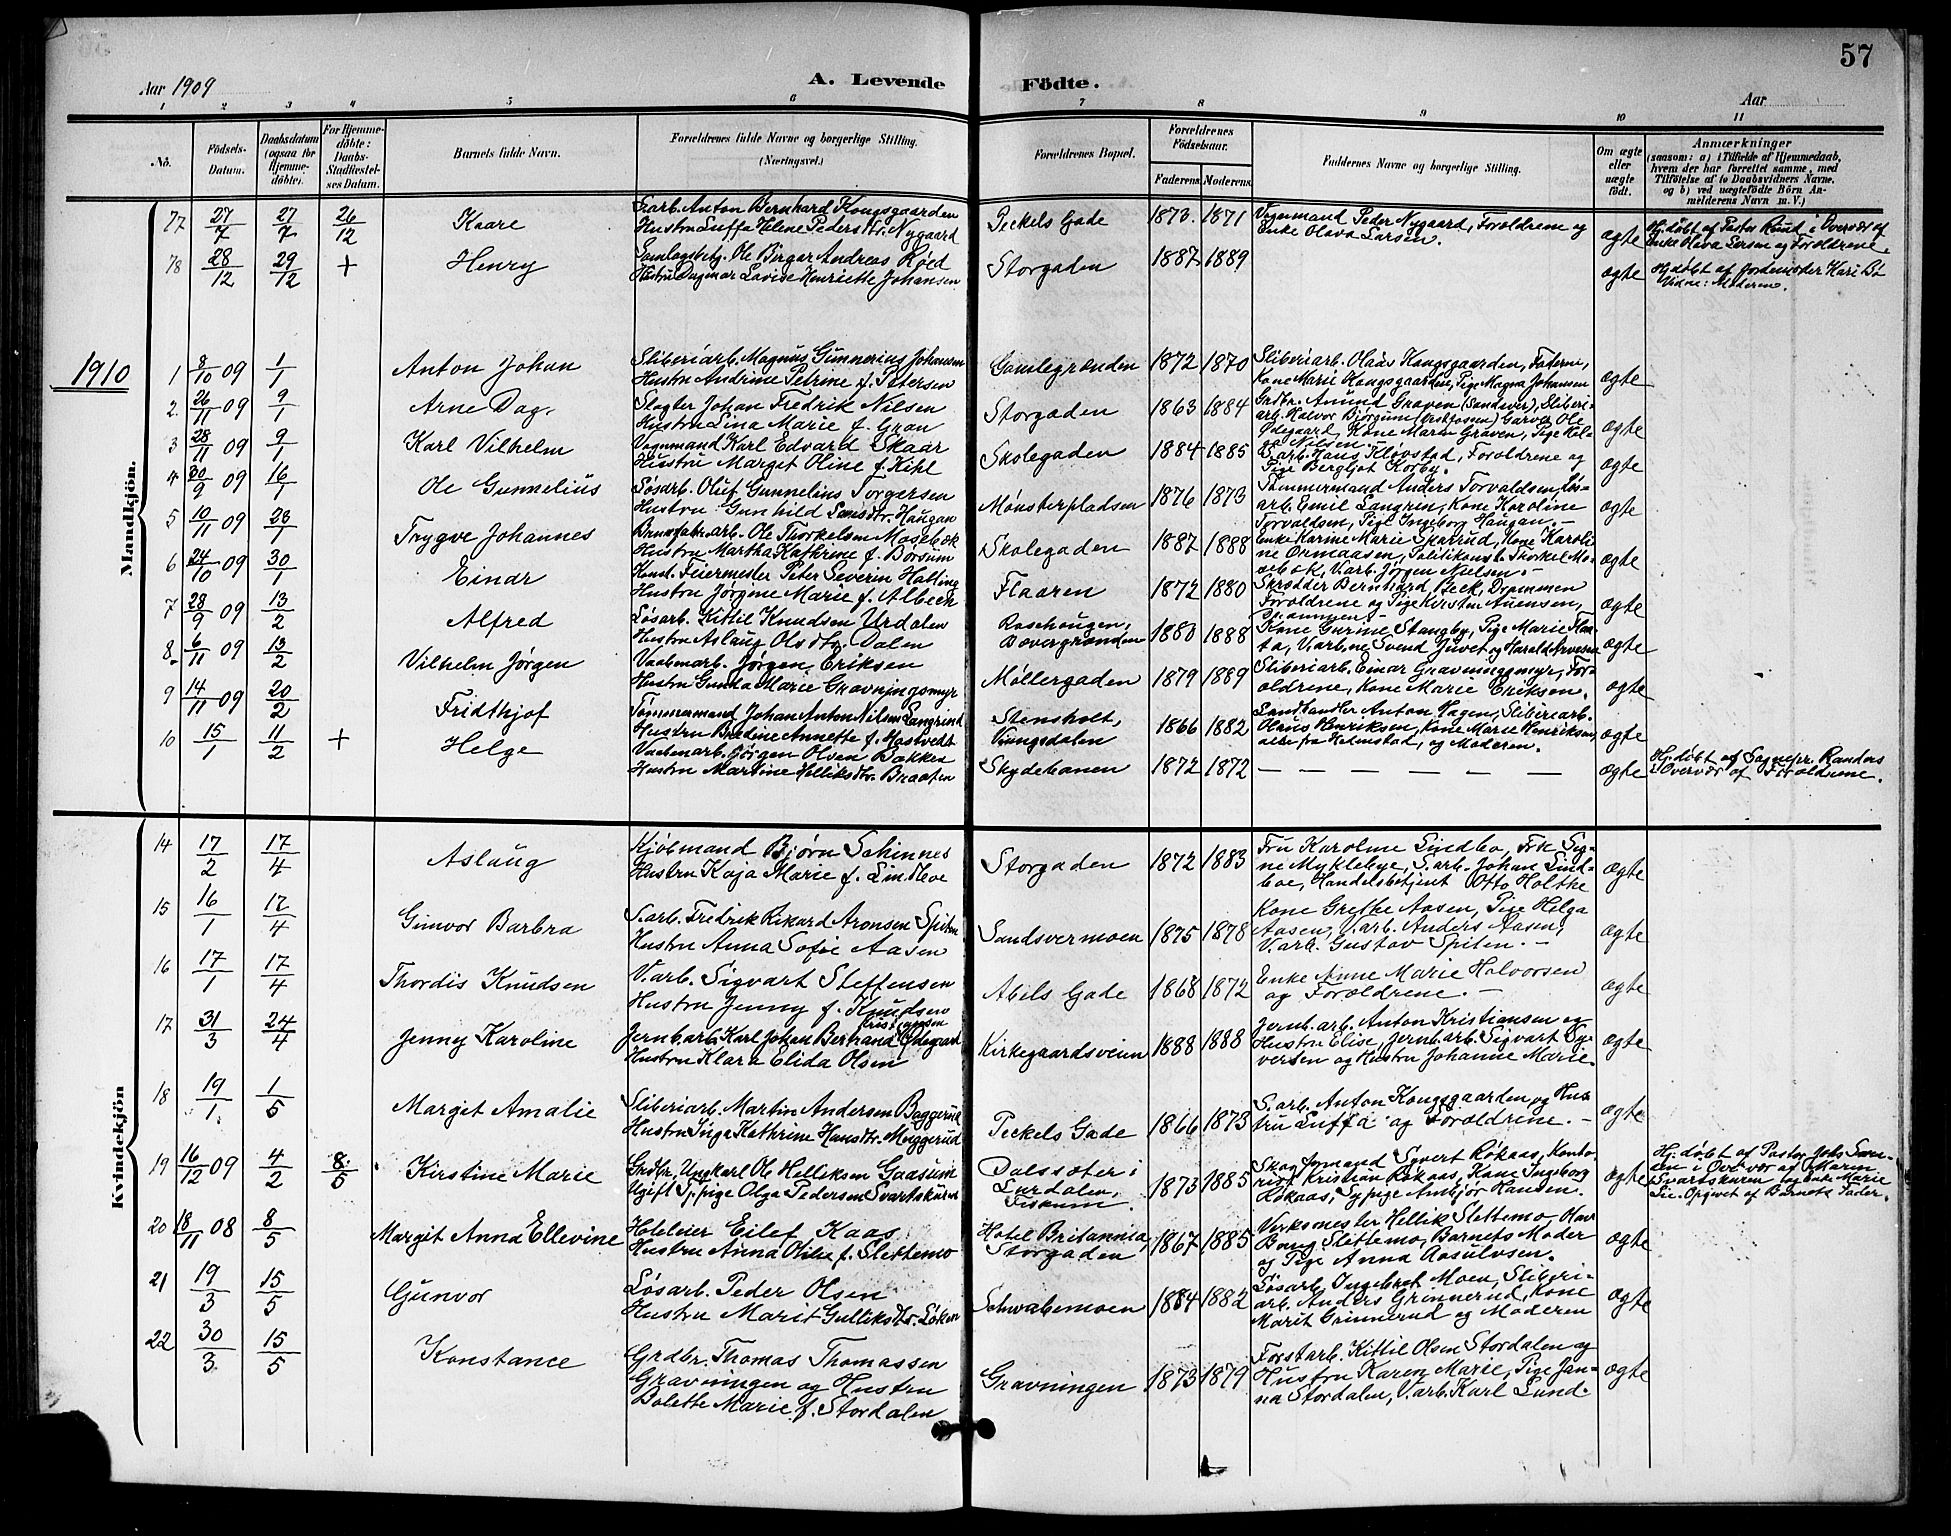 57
Aar 1909
A. Levende Födte.
Aar
1 2 3 4 5 6 7 8 9 10 11
No. Födsels-Datum. Daabsdatum (ogsaa for Hjemmedöbte). For Hjemmedöbte: Daabs-Stadfæstelses Datum. Barnets fulde Navn. Forældrenes fulde Navne og borgerlige Stilling. (Næringsvei.) Forældrenes Bopæl. Forældrenes Födselsaar. Faderens. Moderens. Faddernes Navne og borgerlige Stilling. Om ægte eller uægte födt. Anmærkninger (saasom: a) i Tilfælde af Hjemmedaab, hvem der har forrettet samme, med Tilföielse af to Daabsvidners Navne, og b) ved uægtefödte Börn Anmelderens Navn m. V.)
77 27/7 27/7 26/12 Kaare
Farb. Anton Bernhard Kongsgaarden
Hustru Luffa Helene Pedersdtr. Nygaard
Peckels Gade 1873. 1871
Vognmand Peder Nygaard, Forældrene og
Enke Olava Larsen.
ægte
Hj.døbt af Pastor Ruud i Overvær af
Enke Olava Larsen og Forældrene.
78 28/12 29/12 + Henry
Samlagsbetj. Ole Birger Andreas Røed
Hustru Dagmar Lovise Henriette Johansen
Storgaden 1887 1889 ægte
Hj.døbt af Jordemoder Kari Bø
Vidne: Moderen.
1910
Mandkjön.
1 8/10 09 1/1 Anton Johan
Sliberiarb. Magnus Gunnerius Johansen
Hustru Andrine Petrine f. Petersen
Gamlegrænden 1872 1870
Sliberiarb. Olaus Kongsgaarden, Faderen,
Kone Marie Kongsgaarden, Pige Magna Johansen
ægte
2. 26/11 09 9/1 Arne Dag.
Slagter Johan Fredrik Nilsen
Hustru Lina Marie f. Gran
Storgaden 1863 1884
Grdbr. Amund Graven (Sandsvær), Sliberi-
arb. Halvor Bjørgum Garver Ole
Ødegaard, Kone Maren Graven, Pige Hel-
ga Nilsen.
ægte
3 28/11 09 9/1 Karl Vilhelm
Vognmand Karl Edvard Skaar
Hustru Margit Oline f. Kihl
Skolegaden 1884 1885
V.arb. Hans Kløvstad, Forældrene og
Pige Bergljot Korby.
ægte
4 30/9 09 16/1 Ole Gunnelius
Løsarb. Oluf Gunnelius Torgersen
Hustru Gunhild Larsdtr. Haugan
Mønsterpladsen 1876 1873
Tømmermand Anders Torvaldsen, Løs-
arb. Emil Langrin, Kone Karoline
Torvaldsen, Pige Ingeborg Haugan. -
ægte
5 10/11 09 23/1 Trygve Johannes
Brusfabr.arb. Ole Thorkelsen Masebøk
Hustru Martha Kathrine f. Børsum
Skolegaden 1887 1888
Enke Karine Marie Skarrud, Kone Karoli-
ne Ormaasen, Politikonst. Thorkel Ma-
sebøk, V.arb. Jørgen Nielsen. -
ægte
6 24/10 09 30/1 Einar
Konst. Feiermester Peter Severin Halling
Hustru Jørgine Marie f. Albeck
Flaaren 1872 1880
Skrædder Bernhard Beck, Drammen
Forældrene og Pige Kirsten Auensen,
ægte
7 28/9 09 13/2 Alfred
Løsarb. Kittil Knudsen Urdalen
Hustru Aslaug Olsdtr. Dalen
Raschougen, Bævergrænden 1880 1888
Kone Gurine Stangby, Pige Marie
V.arb.ne Svend Juvet og Harald Arvesen
ægte
8. 6/11 09 13/2 Vilhelm Jørgen
Vaabenarb. Jørgen Eriksen
Hustru Gunda Marie Gravningsmyr
Møllergaden 1879 1889
Sliberiarb. Einar Gravningsmyr, For-
ældrene, Kone Marie Eriksen.
ægte
9 14/11 09 20/2 Fridthjof
Tømmermand Johan Anton Nilsen Langrind
Hustru Bredine Annette f. Hostvedt
Stensholt, Vungsdalen 1866 1882
Landhandler Anton Hagen, Sliberiarb.
Olaus Henriksen, Kone Marie Henriksen,
alle fra Holmestad, og Moderen.
ægte
10 15/1 11/2 + Helge
Vaabenarb. Jørgen Olsen Bakken
Hustru Martine Helliksdtr. Braaten
Skydebanen 1872 1872 — — — — — — — ægte
Hj.døbt af Sognepr. Randers
i Overvær af Forældrene.
Kvindekjön
14 17/2 17/4 Aslaug
Kjøbmand Bjørn Schinnes
Hustru Kaja Marie f. Lindboe
Storgaden 1872 1883
Fru Karoline Lindbo, Frk Sig-
ne Myklebye, S.arb. Johan Lind-
boe, Handelsbetjent Otto Holthe
ægte
15 16/1 17/4 Gunvor Barbra
V.arb. Fredrik Rikard Aronsen Spiten
Hustru Anna Sofie Aasen
Sandsværmoen 1875 1878
Kone Grethe Aasen, Pige Helga
Aasen, V.arb. Anders Aasen,
V.arb. Gustav Spiten. -
ægte
16 17/1 17/4 Thordis Knudsen
V.arb. Sigvart Steffensen
Hustru Jenny f. Knudsen
Abels Gade 1868 1872
Enke Anne Marie Halvorsen
og Forældrene. -
ægte
17 31/3 24/4 Jenny Karoline
Kristiansen
Jernb.arb. Karl Johan Bertrand Ødegaard
Hustru Klara Elida Olsen
Kirkegaardsveien 1888 1888
Jernb.arb. Anton Kristiansen og
Hustru Elise, Jernb.arb. Sigvart Sy-
versen og Hustru Johanne Marie.
ægte
18 19/1 1/5 Margit Amalie
Sliberiarb. Martin Andersen Baggerud
Hustru Inga Kathrine Hansdtr. Muggerud
Peckels Gade 1866 1873
S.arb. Anton Kongsgaarden og Hus-
tru Luffa og Forældrene. -
ægte
19 16/12 09 4/2 8/5 Kirstine Marie
Grdbr. Ungkarl Ole Helliksen Gaasum
Ugift Sypige Olga Pedersen Svartskuren
Dalssæter i Lurdalen, Fiskum. 1873 1885
Skogformand Syvert Røkaas, Konto-
rist Kristian Røkaas, Kone Ingeborg
Røkaas, Sypige Ambjør Hansen.
ægte
Hj.døbt af Pastor Johs San-
den i Overvær af Maren
Svartskuren og Enke Marie
Lie. Opgivet af Barnets Fader.
20 18/11 08 8/5 Margit Anna Ellevine
Hoteleier Eilef Kaas
Hustru Anna Otilie f. Slettemo
Hotel Britannia, Storgaden 1867 1885
Verksmester Hellik Slettemo, Olav
Bang Slettemo, Barnets Moder
og Pige Anna Aasulvsen.
ægte
21 19/3 15/5 Gunvor
Løsarb. Peder Olsen
Hustru Marit Gulliksdtr. Løken
Schwabemoen 1884 1882
Løsarb. Ingebret Moen, Sliberi-
arb. Anders Grinnerud, Kone
Marit Grinnerud og Moderen
ægte
22 30/3 15/5 Konstance
Grdbr. Thomas Thomassen
Gravningen og Hustru
Bolette Marie f. Stordalen
Gravningen 1873 1879
Forstarb. Kittil Olsen Stordalen og
Hustru Karen Marie, Pige Jan-
na Stordalen, V.arb. Karl Lund.
ægte